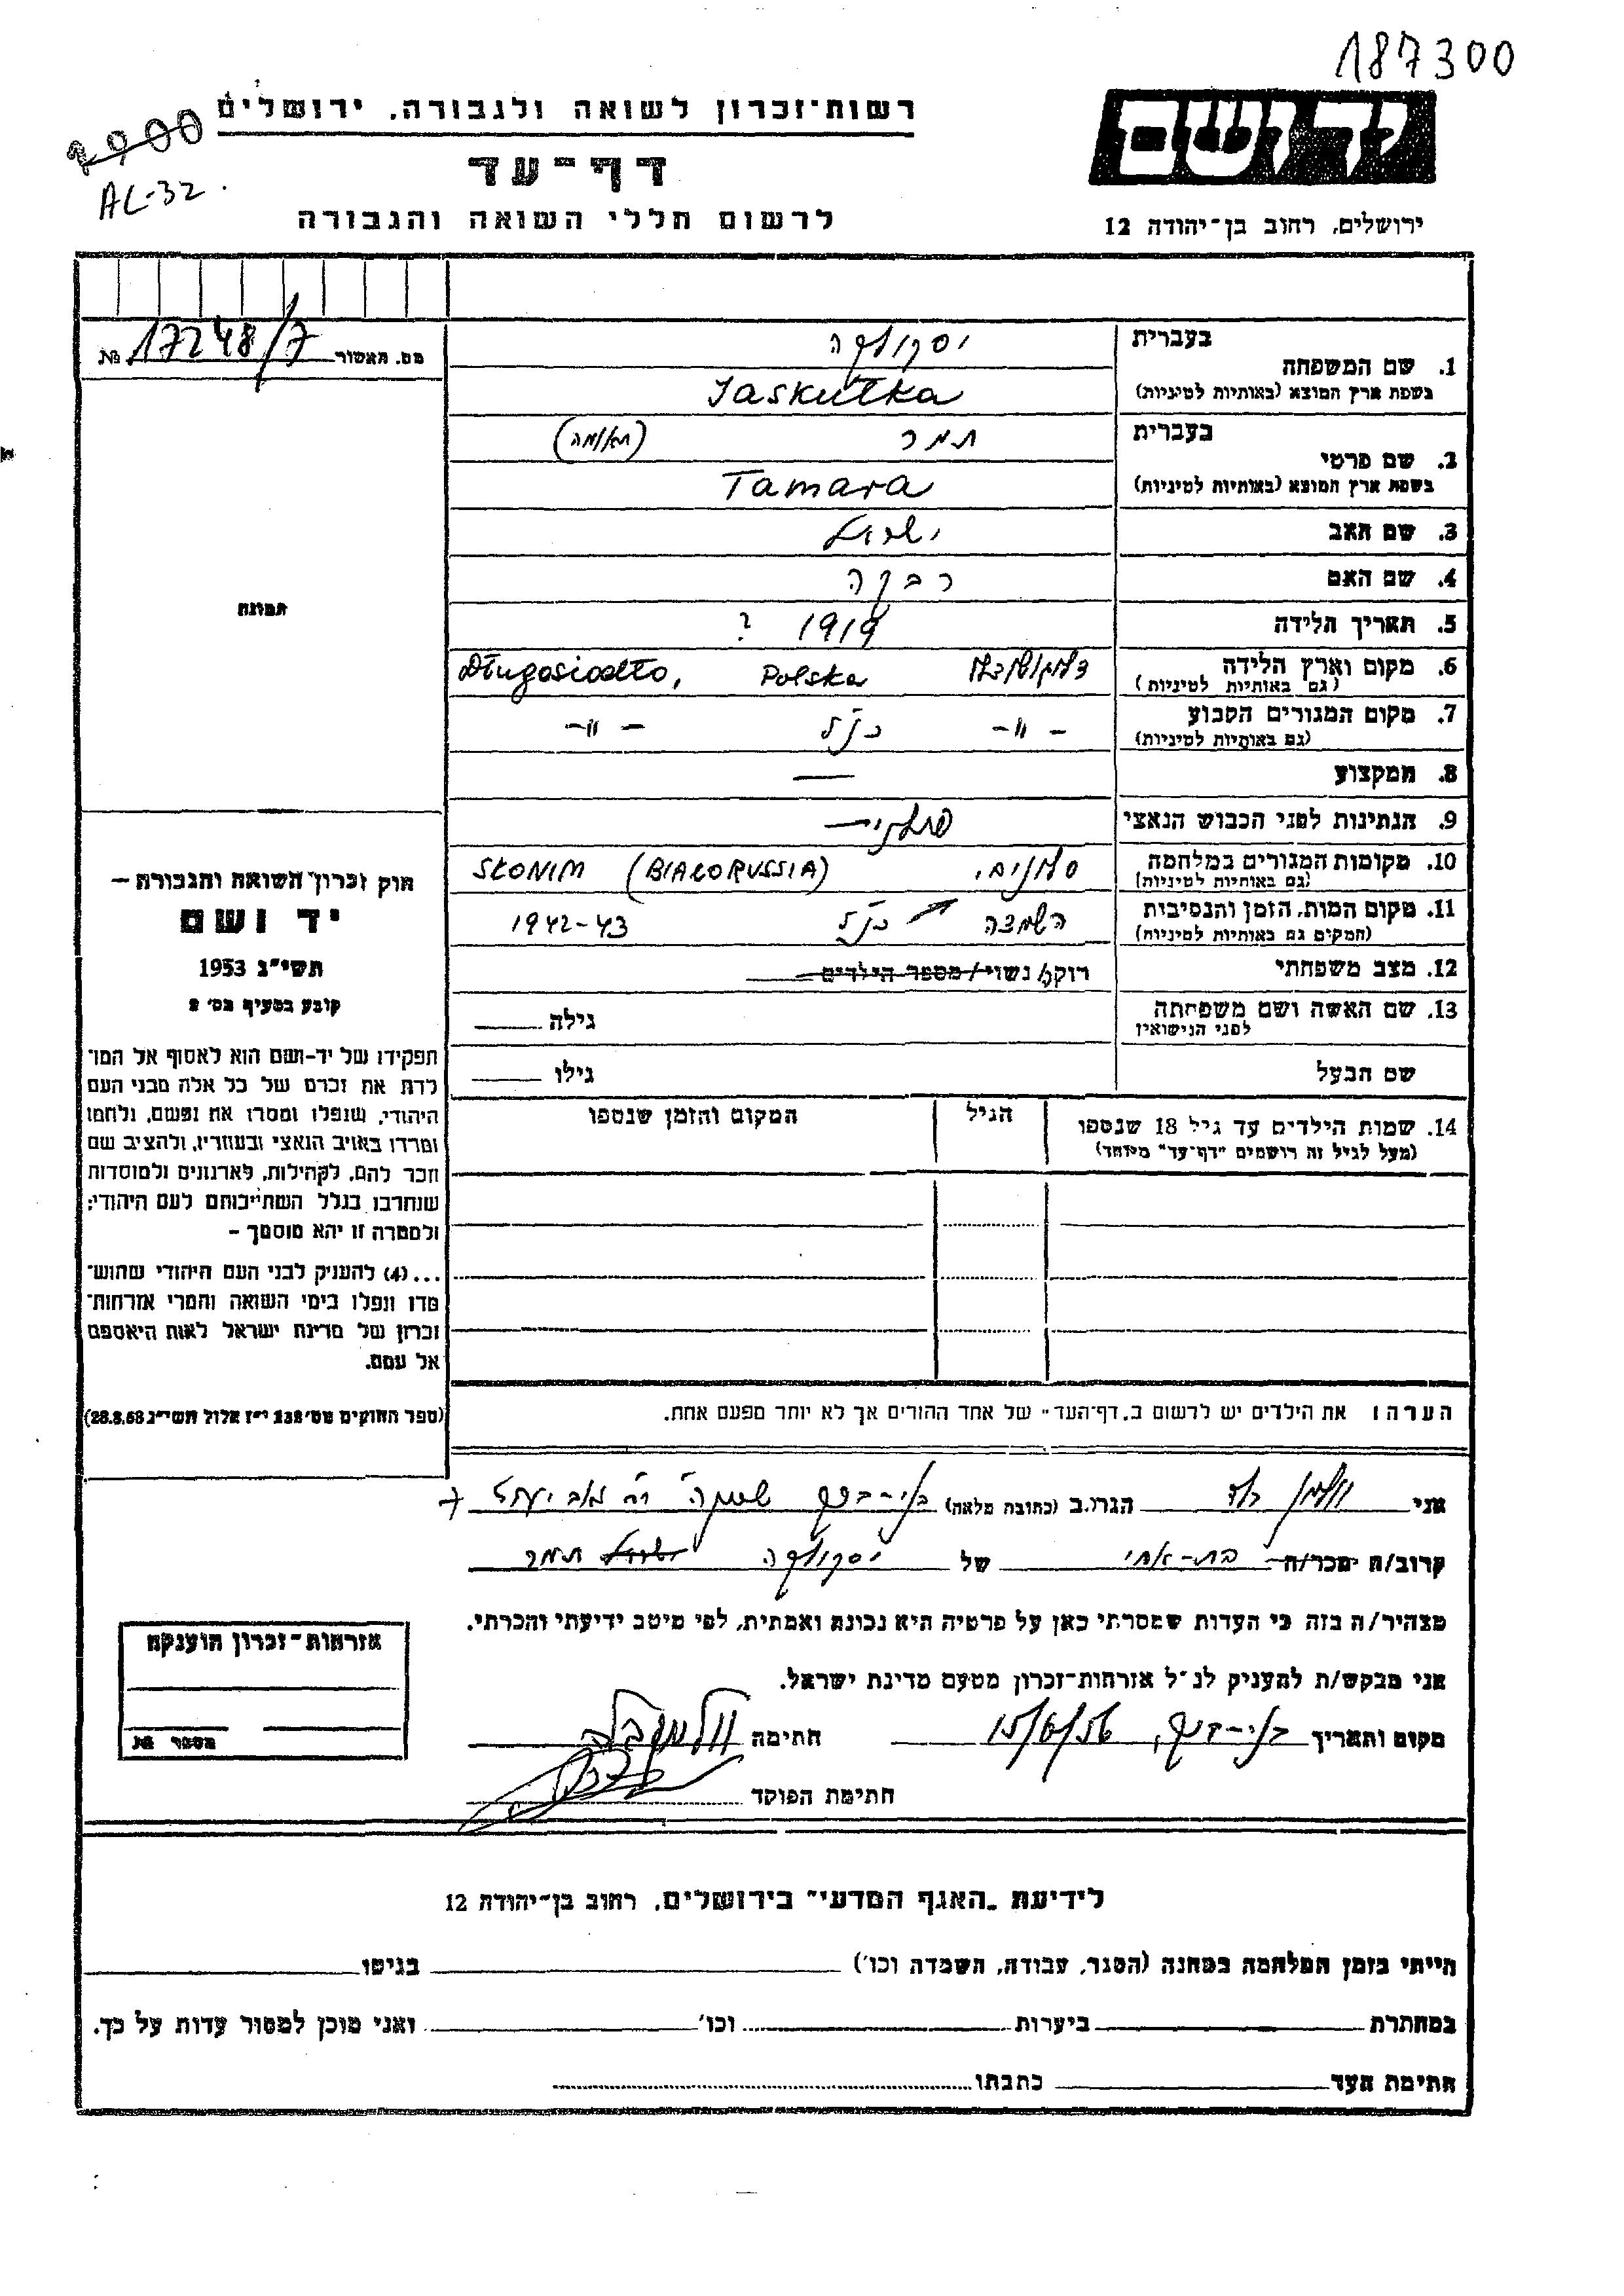 187300
יד ושם
רשות־זכרון לשואה ולגבורה, ירושלים
2900
דף־עד
AL-32
לרשום חללי השואה והגבורה
ירושלים, רחוב בן־יהודה 12
מס. האשור 17248/7 №
בעברית
יסקולקה
1. שם המשפחה
בשפת ארץ המוצא (באותיות לטיניות)
Jaskułka
בעברית
תמר (תאומה)
2. שם פרטי
בשפת ארץ המוצא (באותיות לטיניות)
Tamara
3. שם האב
ישראל
4. שם האם
רבקה
5. תאריך הלידה
1919 ?
6. מקום וארץ הלידה
(גם באותיות לטיניות)
Polska
Długosiodło,
7. מקום המגורים הקבוע
(גם באותיות לטיניות)
-"- כנ"ל -"-
8. המקצוע —
9. הנתינות לפני הכבוש הנאצי
פולנית
10. מקומות המגורים במלחמה
(גם באותיות לטיניות)
סלונים, SŁONIM (BIAŁORUSSIA)
11. מקום המות, הזמן והנסיבות
(המקים גם באותיות לטיניות)
השמדה כנ"ל 1942-43
12. מצב משפחתי
רוק/ה נשוי/ מספר הילדים
13. שם האשה ושם משפחתה
לפני הנישואין
גילה
שם הבעל
גילו
14. שמות הילדים עד גיל 18 שנספו
(מעל לגיל זה רושמים "דף־עד" מיוחד)
הגיל
המקום והזמן שנספו
הערה: את הילדים יש לרשום ב"דף־העד" של אחד ההורים אך לא יותר מפעם אחת.
תמונה
חוק זכרון השואה והגבורה —
יד ושם
תשי"ג 1953
קובע בסעיף מס' 2
תפקידו של יד-ושם הוא לאסוף אל המו־
לדת את זכרם של כל אלה מבני העם
היהודי, שנפלו ומסרו את נפשם, נלחמו
ומרדו באויב הנאצי ובעוזריו, ולהציב שם
וזכר להם, לקהילות, לארגונים ולמוסדות
שנחרבו בגלל השתייכותם לעם היהודי;
ולמטרה זו יהא מוסמך —
...(4) להעניק לבני העם היהודי שהוש־
מדו ונפלו בימי השואה והמרי אזרחות־
זכרון של מדינת ישראל לאות היאספם
אל עמם.
(ספר החוקים מס' 132 י"ז אלול תשי"ג 28.8.53)
אני
הגר/ה ב (כתובת מלאה) בני-ברק
7
קרוב/ה מכר/ה בת-אחי של יסקולקה ישראל תמר
מצהיר/ה בזה כי העדות שמסרתי כאן על פרטיה היא נכונה ואמתית, לפי מיטב ידיעתי והכרתי.
אני מבקש/ת להעניק לנ"ל אזרחות־זכרון מטעם מדינת ישראל.
מקום ותאריך בני-ברק, 15/6/56 חתימה
חתימת הפוקד
אזרחות־זכרון הוענקה
מספר №
לידיעת "האגף המדעי" בירושלים, רחוב בן־יהודה 12
הייתי בזמן המלחמה במחנה (הסגר, עבודה, השמדה וכו') בגיטו
במחתרת ביערות וכו' ואני מוכן למסור עדות על כך.
חתימת העד כתבתו